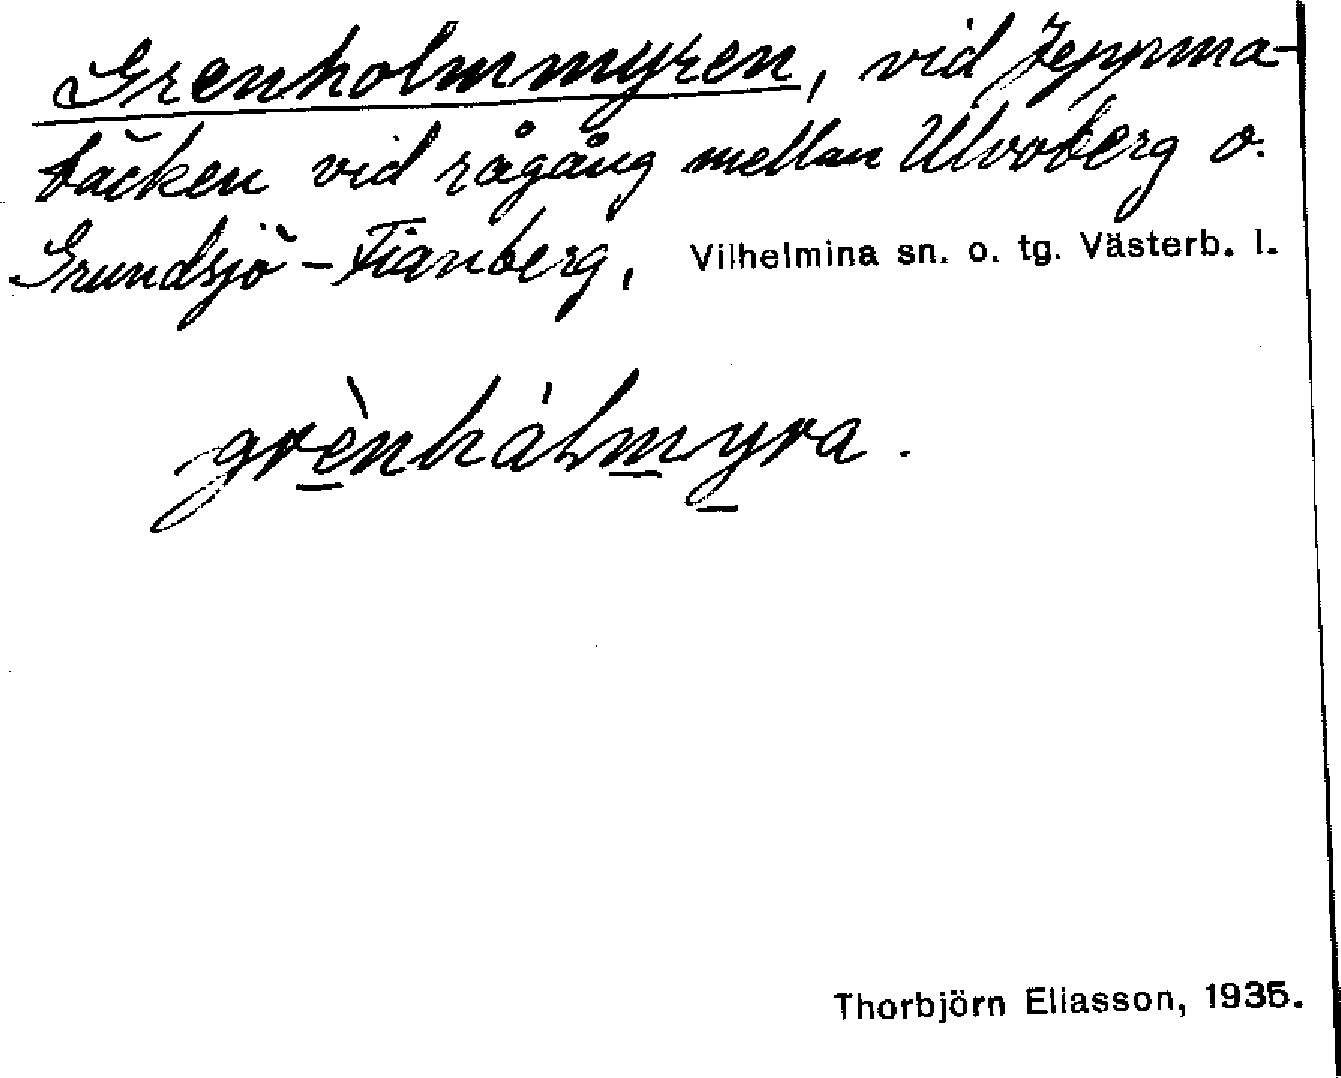 Grenholmmyren, vid Jeppma-
bäcken vid rågång mellan Ulvoberg o.
Grundsjö - Fianberg, Vilhelmina sn. o. tg. Västerb. l.
grènhálmyra.
Thorbjörn Eliasson, 1935.